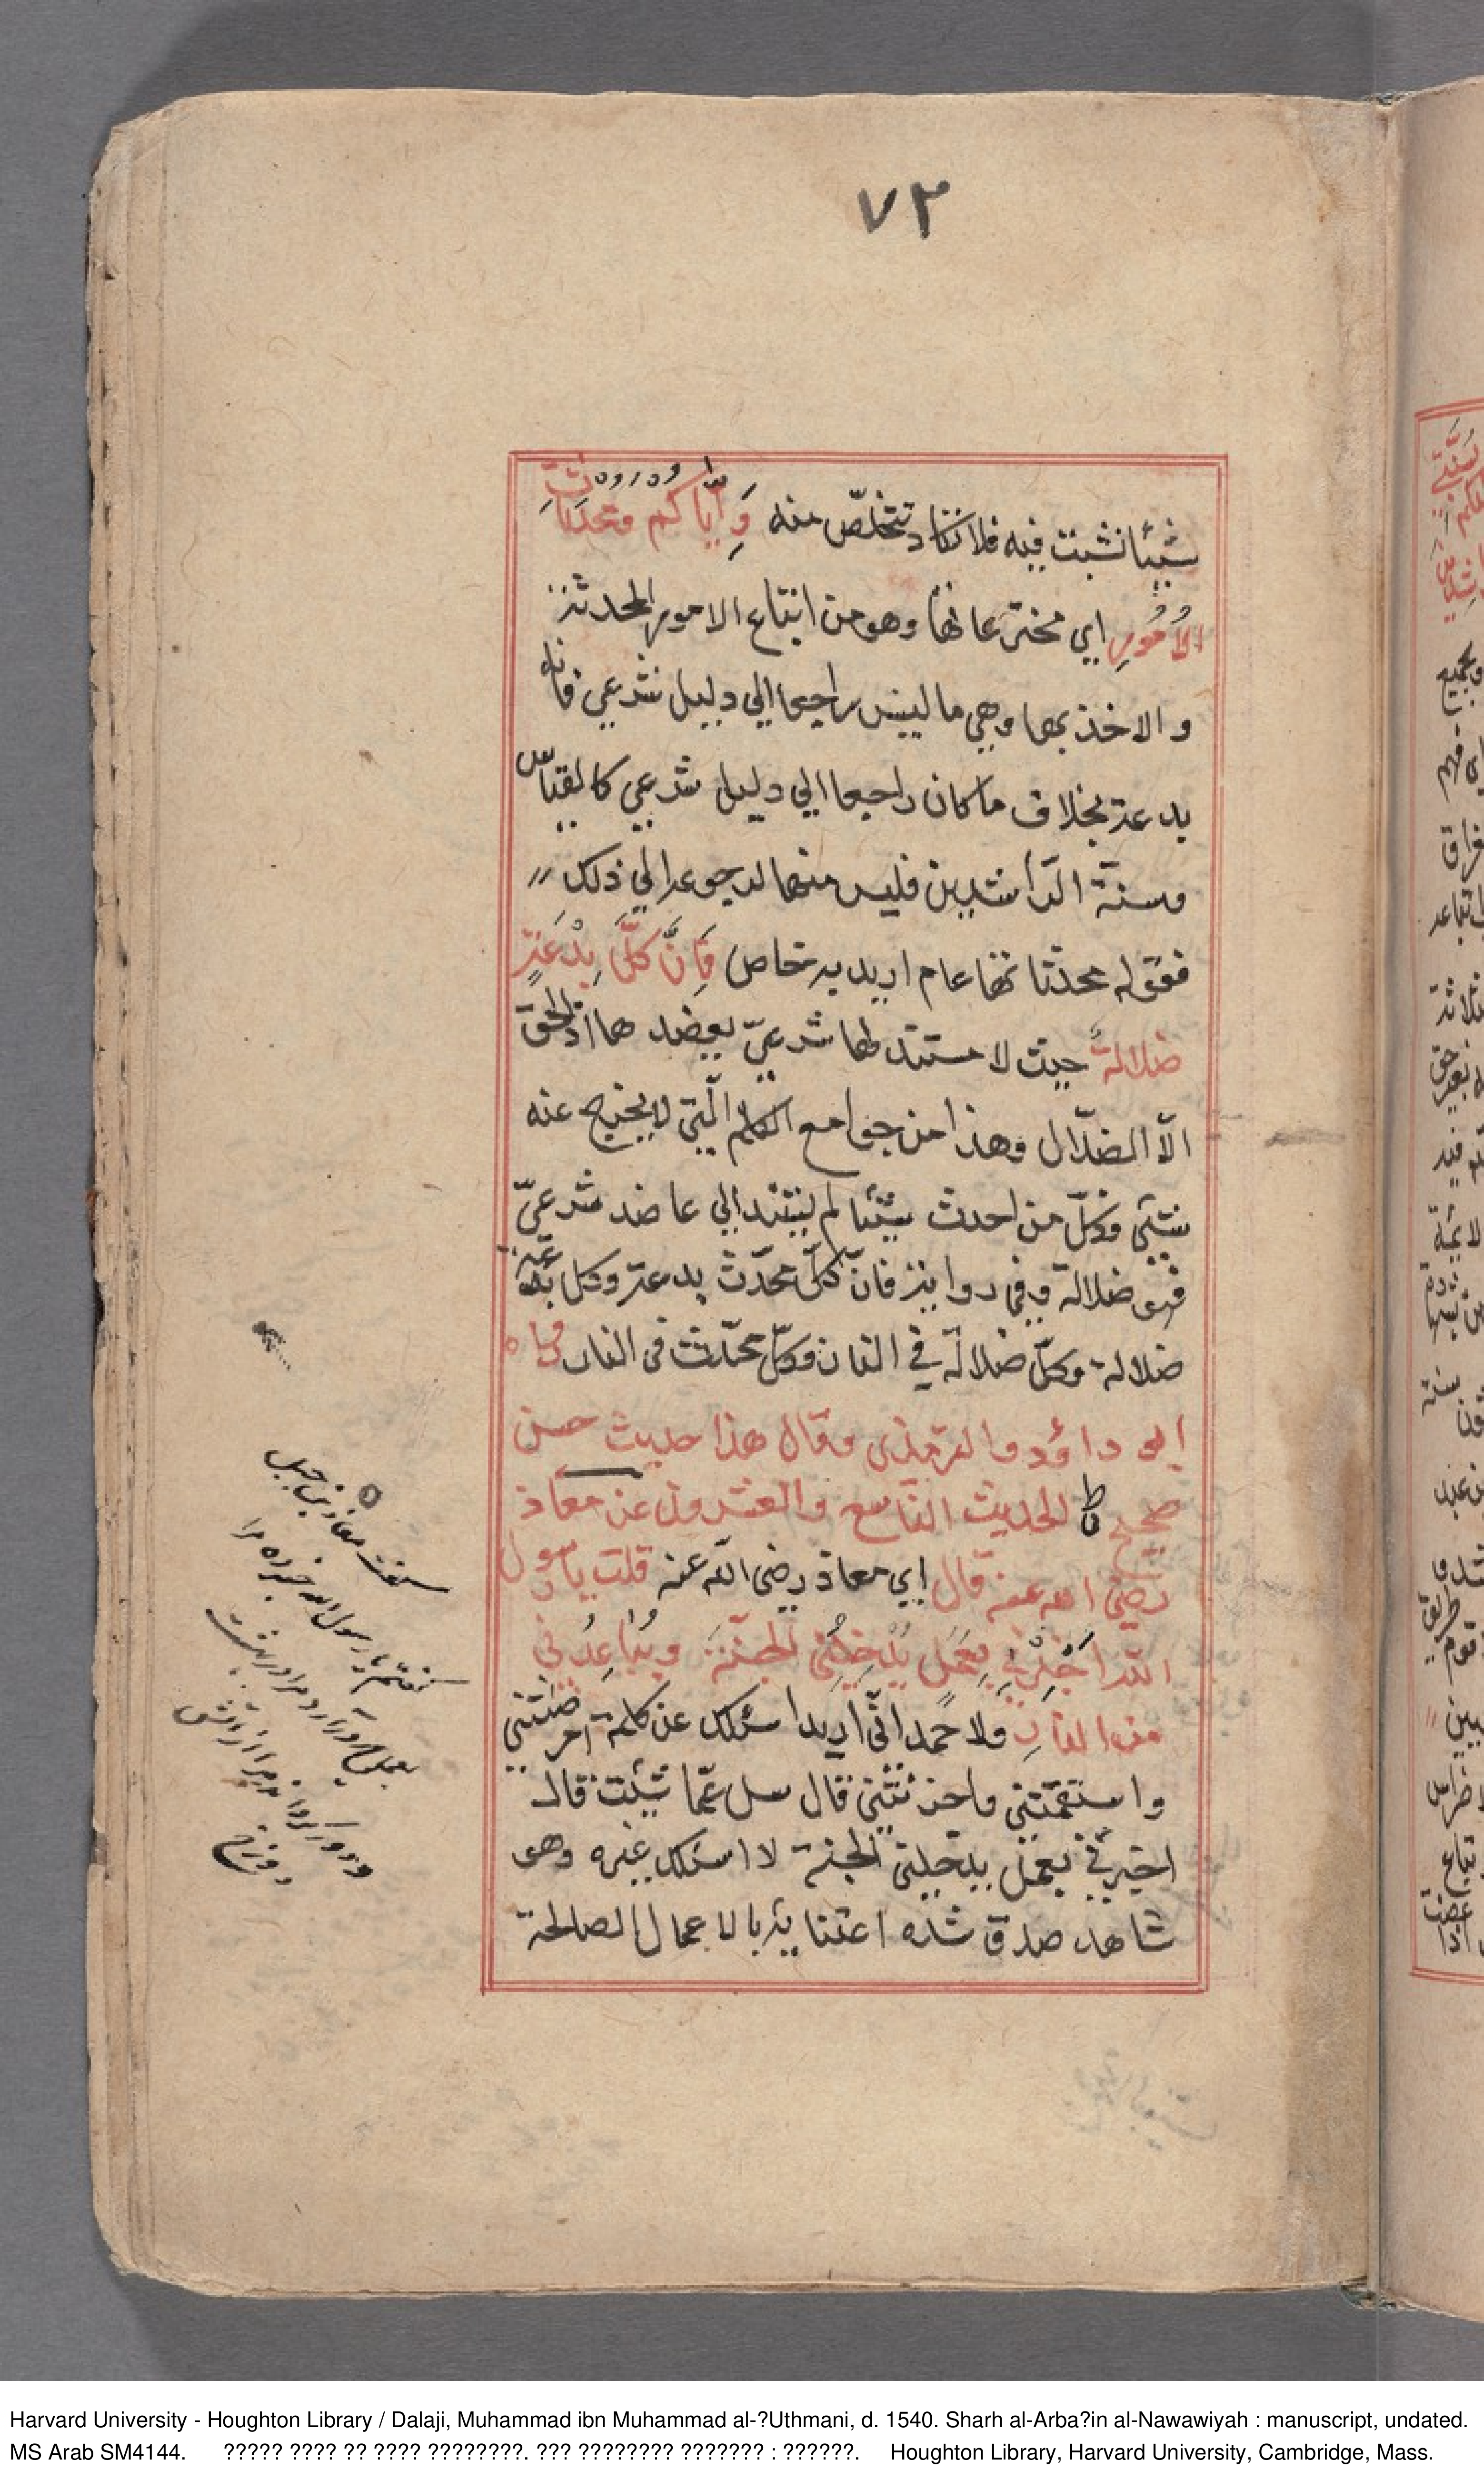 ٧٢
شيئا نشبت فيه فلا تكاد تتخلّص منه وَإيّاكم ومُحْدَثَاتِ
الأُمُورِ اي مخترعاتها وهو من اتباع الامور المحدثة
والاخذ بها وهي ما ليس راجعا الي دليل شرعي فانه
بدعة بخلاف ما كان راجعا الي دليل شرعي كالقياس
وسنة الراشدين فليس منها لرجوعه الي ذلك
فقوله محدثاتها عام اريد به خاص فَإنَّ كلَّ بِدْعَةٍ
ضلالةٌ حيث لا مستند لها شرعيّ يعضدها اذ الحق
الّا الضلال وهذا من جوامع الكلم الّتي لا يخرج عنه
شئي وكلّ من احدث شيئا لم يستند الي عاضد شرعيّ
فهو ضلالة وفي رواية فانّ كلّ محدث بدعة وكل بدعة
ضلالة وكلّ ضلالة في النار وكلّ محدث في النار رواه
ابو داؤد والترمذى وقال هذا حديث حسن
صحيح الحديث التاسع والعشرون عن معاذ
رضي الله عنه قال اي معاذ رضى الله عنه قلت يا رسول
الله اَخْبِرْنِي بِعَمَلٍ يُدْخِلُنِي الجَنّةَ ويُبَاعِدُنِي
من النارِ ولاحمد انّي اريد اسئلك عن كلمة امرضتني
واستقمتني واحزنتني قال سل عمّا شئت قال
اخبرني بعمل يدخلني الجنة لا اسئلك غيره وهو
شاهد صدق شدة اعتنايه بالاعمال الصالحة
گفت معاذ بن جبل
گفتم يا رسول الله خبر ده مرا
بعملى كه در آرد مرا در بهشت
ودور گرداند مرا از آتش
دوزخ
Harvard University - Houghton Library / Dalaji, Muhammad ibn Muhammad al-?Uthmani, d. 1540. Sharh al-Arba?in al-Nawawiyah : manuscript, undated.
MS Arab SM4144. ????? ???? ?? ???? ????????. ??? ???????? ??????? : ??????. Houghton Library, Harvard University, Cambridge, Mass.